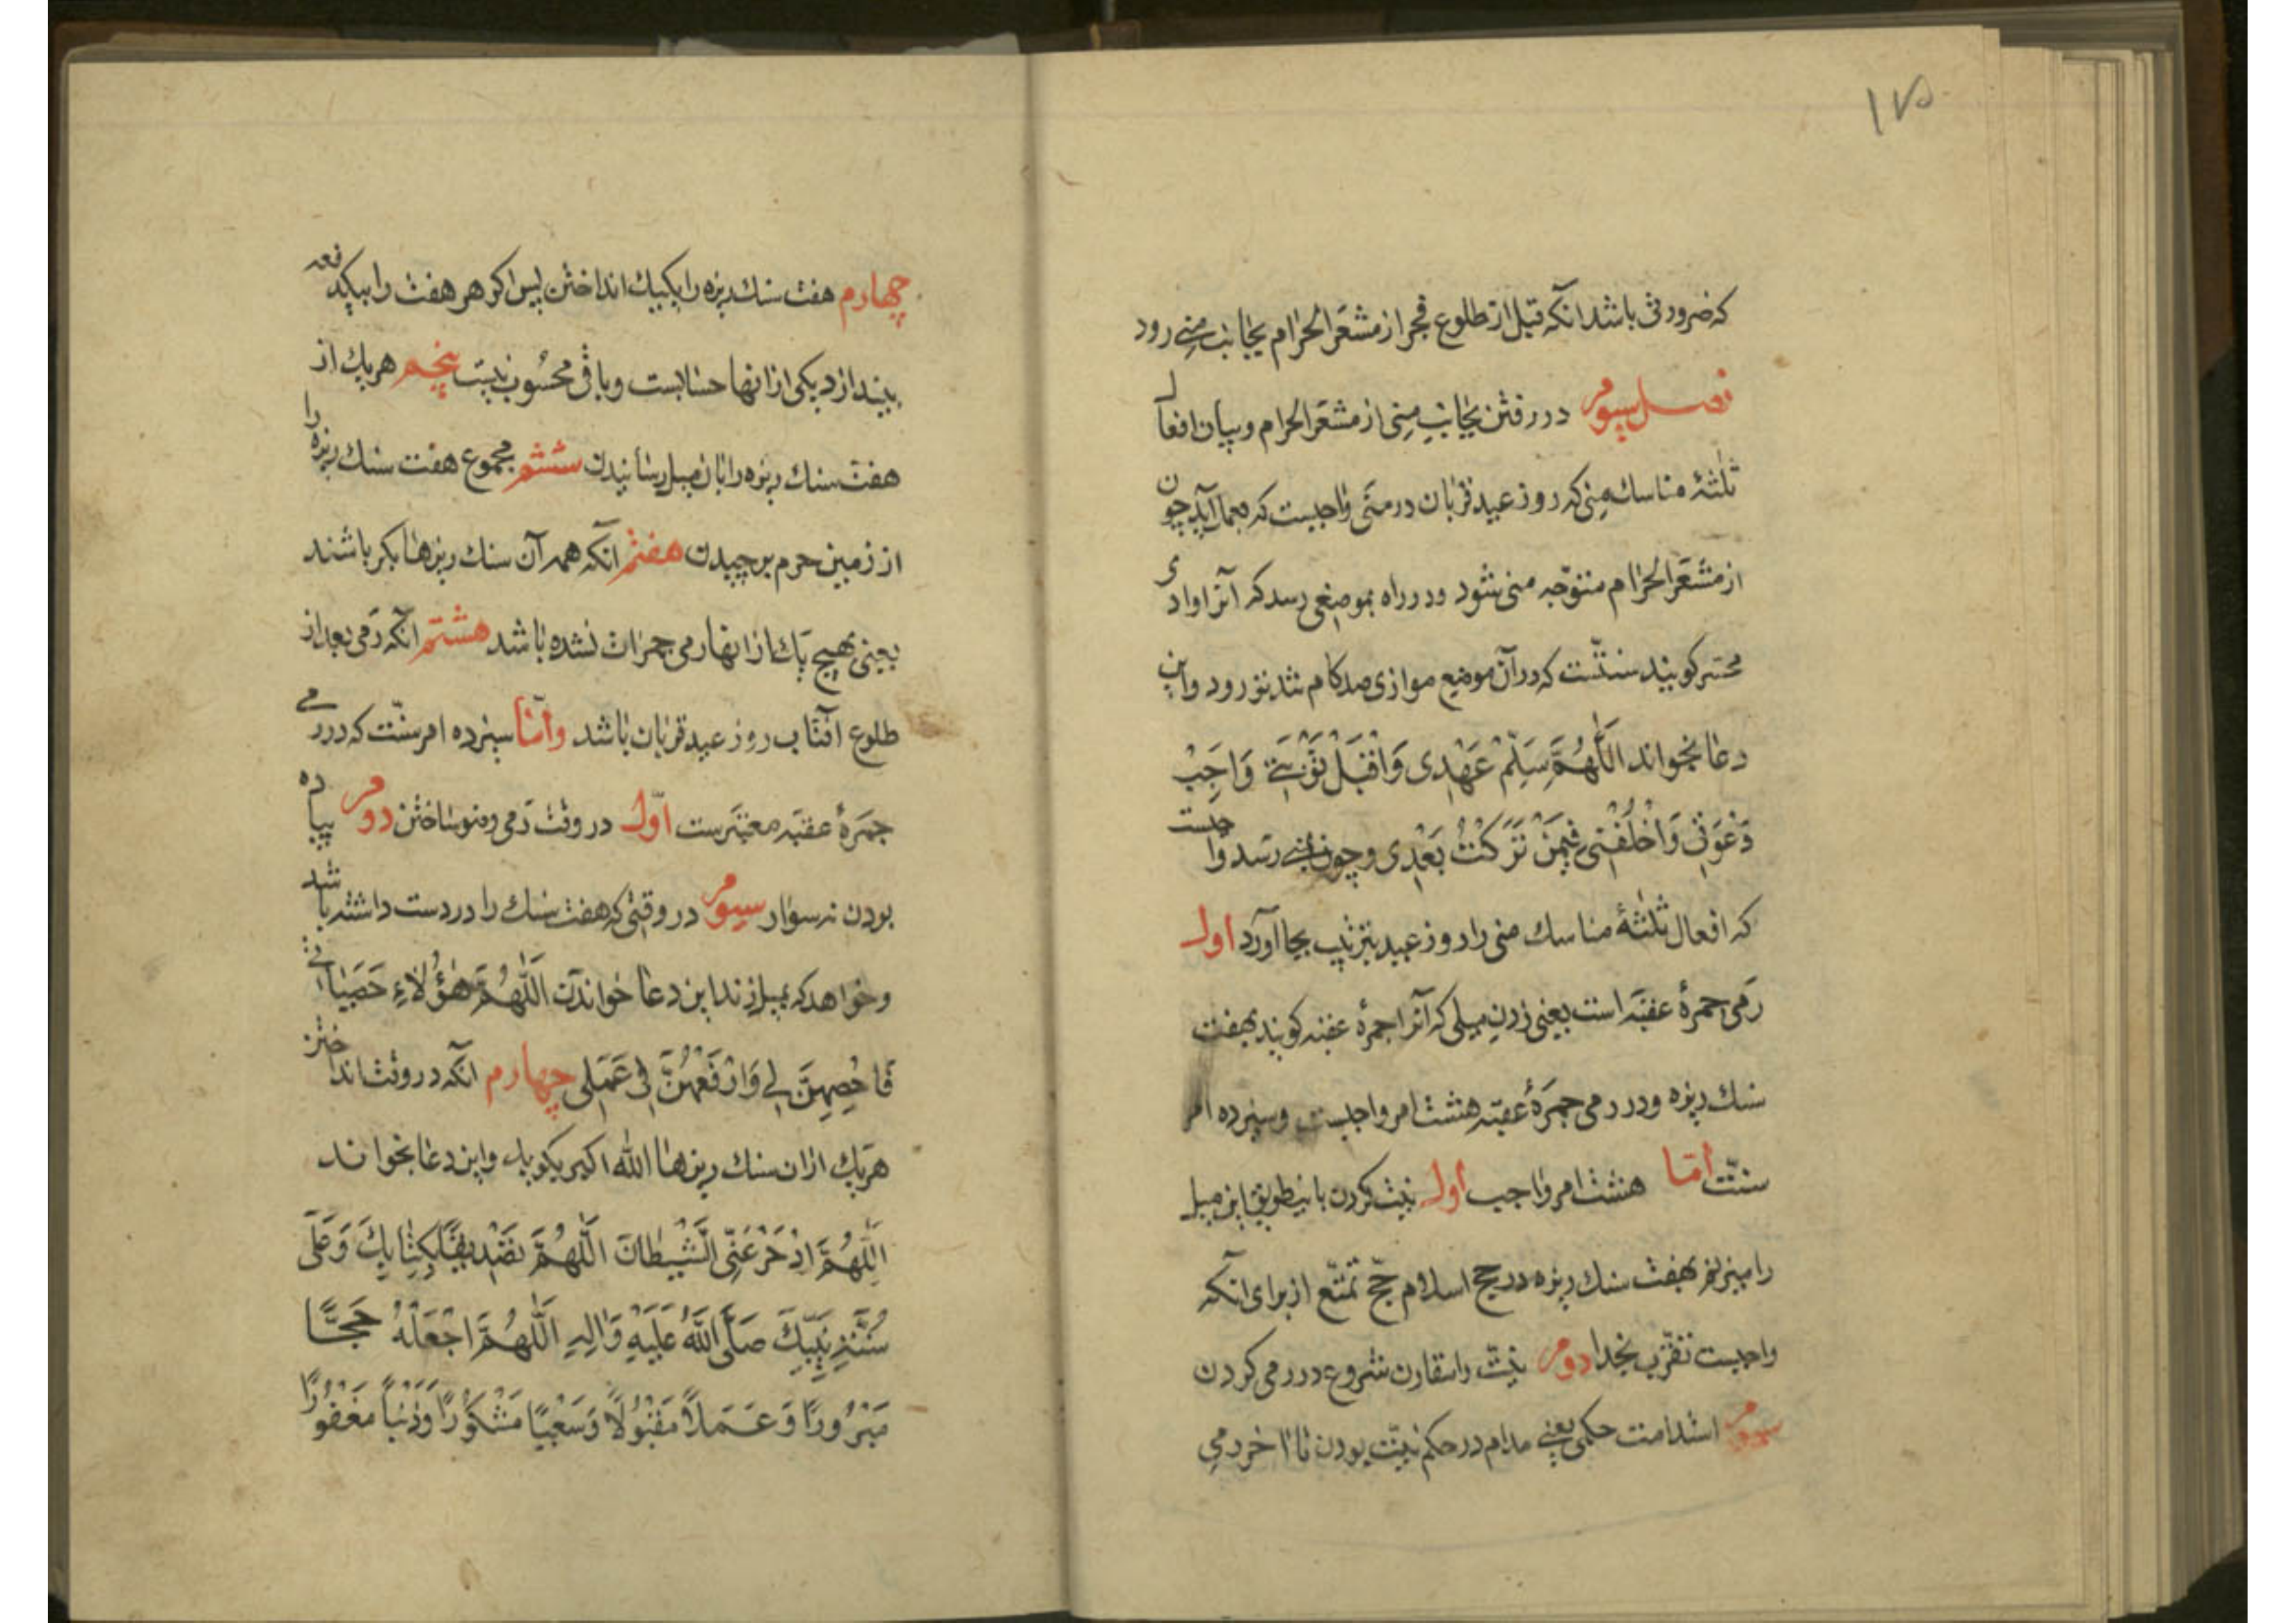 ۱۷۵
که ضرورتی باشد انکه قبل از طلوع فجر از مشعَر الحَرام بجانب منی رود
فصل سیوم در رفتن بجانبِ مِنی از مشعَر الحرام و بیان افعال
ثلٰثهٔ مناسك مِنی که روز عید قربان در منٰی واجبست که بعمل آید چون
از مشعَر الحَرام متوَجّه منی شود و در راه بموضعی رسد که آنرا وادی
محسّر کویند سنتّست که در آن موضع موازی صد کام تند تو رود و این
دعا بخواند اَللّٰهُمَّ سَلِّمْ عَهْدِی وَاقْبَلْ تَوْبَتِی وَاَجِبْ
دَعْوَتِی وَاخْلُفْنِی فِیمَنْ تَرَکْتُ بَعْدِی و چون بمنی رسد واجبست
که افعال ثلٰثهٔ مناسك منی را روز عید بترتیب بجا آورد اول
رَمی جمرهٔ عقبَه است یعنی زدنِ میلی که آنرا جمرهٔ عقبه کویند بهفت
سنك ریزه و در رمی جمَرهٔ عقبَه هشت امر واجبست و سیزده امر
سنّت امّا هشت امر واجب اول نیت کردن باینطریق این میل
را میزنم بهفت سنك ریزه در حج اسلام حجّ تمتّع از برای آنکه
واجبست تقرّب بخدا دوم نیّت را مقارن شروع در رمی کردن
سیوم استدامت حکمی یعنی مدام در حکم نیّت بودن تا اخر رمی
چهارم هفت سنك ریزه را یکیك انداختن پس اکر هر هفت را بیکدفعه
بیندازد یکی از انها حسابست و باقی محسُوب نیست پنجم هریك از
هفت سنك ریزه را بان میل رسانیدن ششم مجموع هفت سنك ریزه را
از زمین حرم برچیدن هفتم آنکه همه آن سنك ریزها بکر باشند
یعنی بهیچ یك از انها رمی جمرات نشده باشد هشتم آنکه رَمی بعد از
طلوع آفتاب روز عید قربان باشد وامّا سیزده امر سنّت که در رمی
جمرهٔ عقبَه معتبَرست اوّل در وقت رَمی وضو ساختن دوم پیاده
بودن نه سوار سیوم در وقتی که هفت سنك را در دست داشته باشد
و خواهد که بمیل زند این دعا خواندن اَللّٰهُمَّ هٰؤُلاءِ حَصَیَاتی
فَاحْصِهِنَّ لِی وَارْفَعْهُنَّ فِی عَمَلِی چهارم آنکه در وقت انداختن
هریك ازان سنك ریزها اللّه اکبر بکوید و این دعا بخواند
اَللّٰهُمَّ ادْحَرْ عَنِّی الشَّیْطانَ اَللّٰهُمَّ تَصْدِیقًا بِکِتَابِكَ وَعَلٰی
سُنَّةِ نَبِیِّكَ صَلَّی اللّٰهُ عَلَیْهِ وَاٰلِهِ اَللّٰهُمَّ اجْعَلْهُ حَجًّا
مَبْرُورًا وَعَمَلاً مَقْبُولاً وَسَعْیًا مَشْکُورًا وَذَنْبًا مَغْفُورًا